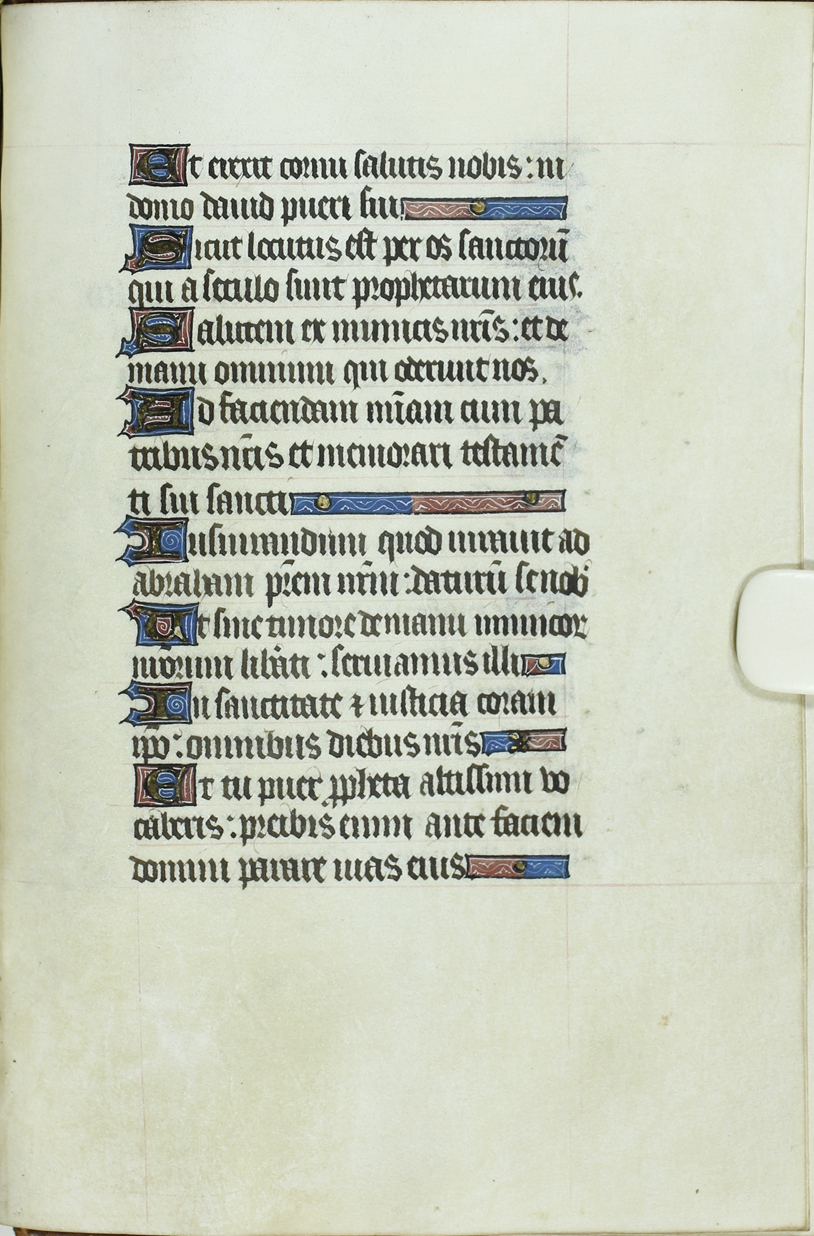 Et erexit cornu salutis nobis : in
domo dauid pueri sui
Sicut locutus est per os sanctorũ
qui a seculo sunt prophetarum eius.
Salutem ex inimicis nr̃is : et de
manu omnium qui oderunt nos.
Ad faciendam mĩam cum pa
tribus nr̃is et memorari testamẽ
ti sui sancti
Iusiurandum quod iurauit ad
abraham pr̃em nr̃m : daturũ se nob̾
Ut sine timore de manu inimicor
morum lib̾ati : seruiamus illi
In sanctitate ⁊ iusticia coram
ip̃o : omnibus diebus nr̃is
Et tu puer ꝓpheta altissimi vo
caberis : preibis enim ante faciem
domini parare uias eius